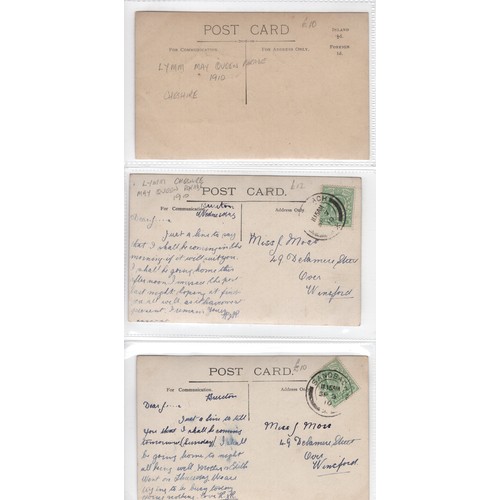 £10
POST CARD
INLAND
½d.
FOREIGN
1d.
FOR COMMUNICATION.
FOR ADDRESS ONLY.
LYMM MAY QUEEN
1910
CHESHIRE
LYMM CHESHIRE
MAY QUEEN
1910
£12
POST CARD.
For Communication.
Address Only.
Wednesday
Dear J....
Just a line to say
that I shall be coming in the
morning if it will suit you.
I shall be going home this
afternoon I missed the post
last night, hoping to find
you all well, as it leaves us
at present. I remain Yours
Miss J Moss
49 Delamere Street
Over
Winsford
£10
POST CARD.
For Communication.
Address Only.
SANDBACH
Dear J....
Just a line to tell
you that I shall be coming
tomorrow (Sunday) I shall
be going home to night
all being well. Mother
went on Thursday
Miss J Moss
49 Delamere Street
Over
Winsford